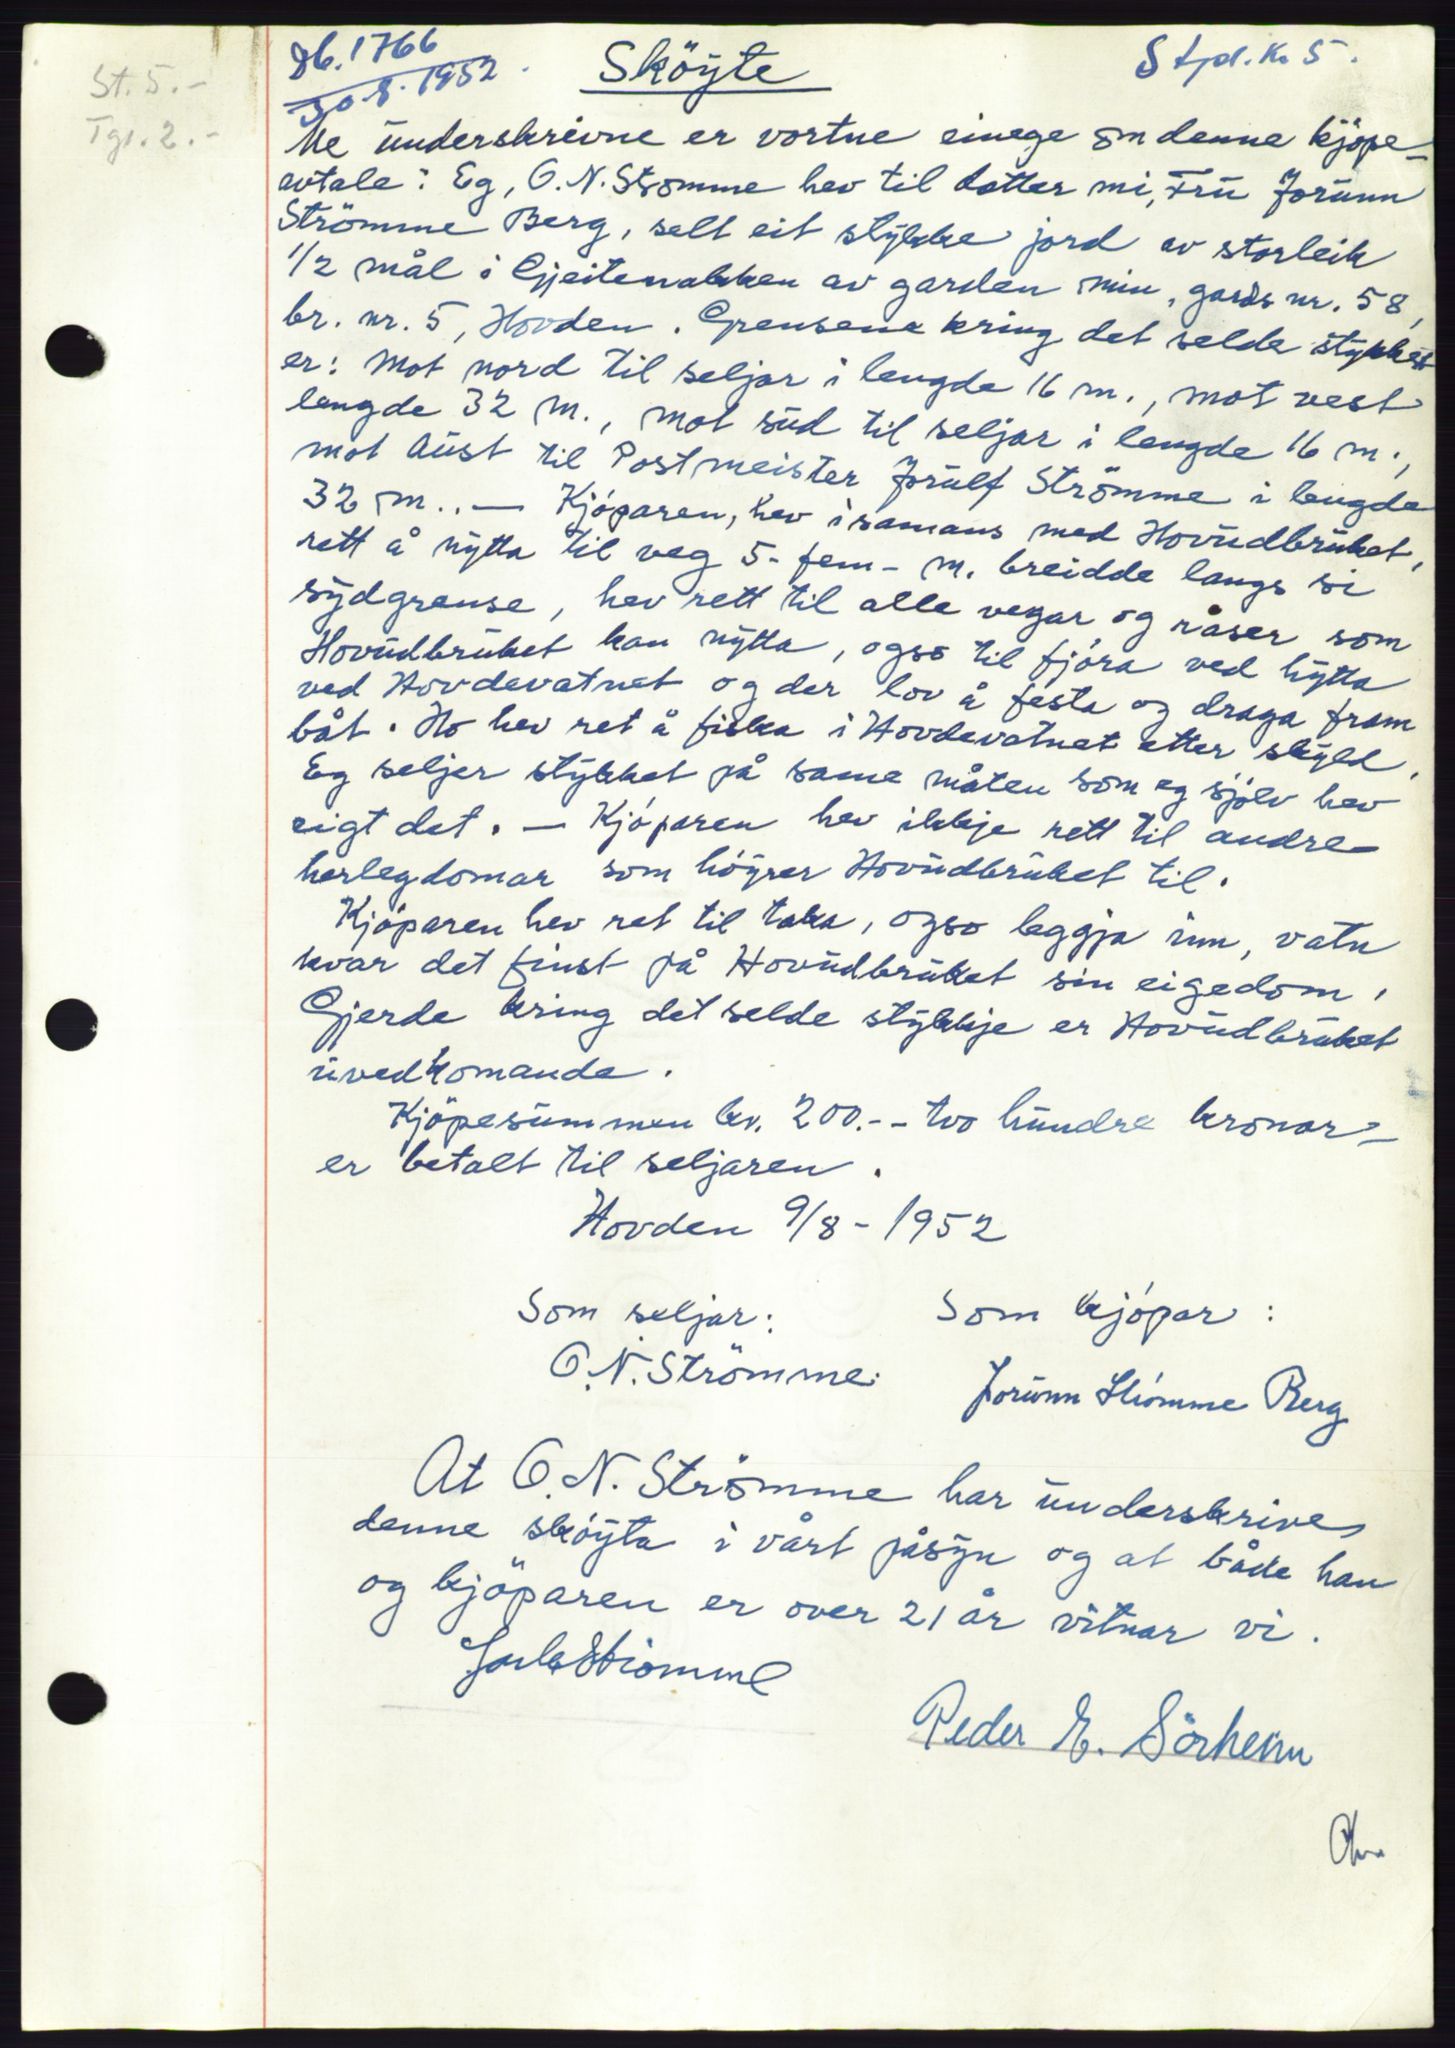 St. 5.-
Tgl. 2.-
Db. 1766
30.8.1952.
Stpl. Kr 5.
Sköyte
Me underskrivne er vortne einege om denne kjöpe-
avtale: Eg, O. N. Strømme hev til dotter mi, Fru Jorunn
Strömme Berg, selt eit stykke jord av storleik
1/2 mål i Gjeitenakken av garden min, gards nr. 58,
br. nr. 5, Hovden. Grensene kring det selde stykket
er: Mot nord til seljar i lengde 16 m., mot vest
lengde 32 m., mot sud til seljar i lengde 16 m.,
mot Aust til Postmeister Jrulf Strömme i lengde
32 m.. — Kjóparen, hev isamans med Hovudbruket,
rett å nytta til veg 5- fem- m. breidde langs si
sydgrense, hev rett til alle vegar og råser som
Hovudbruket kan nytta, ogso til fjóra ved hytta
ved Hovdevatnet og der lov å festa og draga fram
båt. Ho hev ret å fiska i Hovdevatnet etter skyld.
Eg seljer stykket på same måten som eg sjölv hev
eigt det. — Kjóparen hev ikkje rett til andre
herlegdomar som höyrer Hovudbruket til.
Kjöparen hev ret til taka, ogso leggja inn, vatn
kvar det finst på Hovudbruket sin eigedom.
Gjerde kring det selde stykkje er Hovudbruket
uvedkomande.
Kjöpesummen kr. 200.-- tvo hundre kronar -
er betalt til seljaren.
Hovden 9/8 - 1952
Som seljar: Som kjópar:
O. N. Strömme. Jorunn Strómme Berg
At O. N. Strömme har underskrive
denne sköyta i vårt påsyn og at både han
og kjöparen er over 21 år vitnar vi.
Jarle Strömme
Peder E. Sörheim